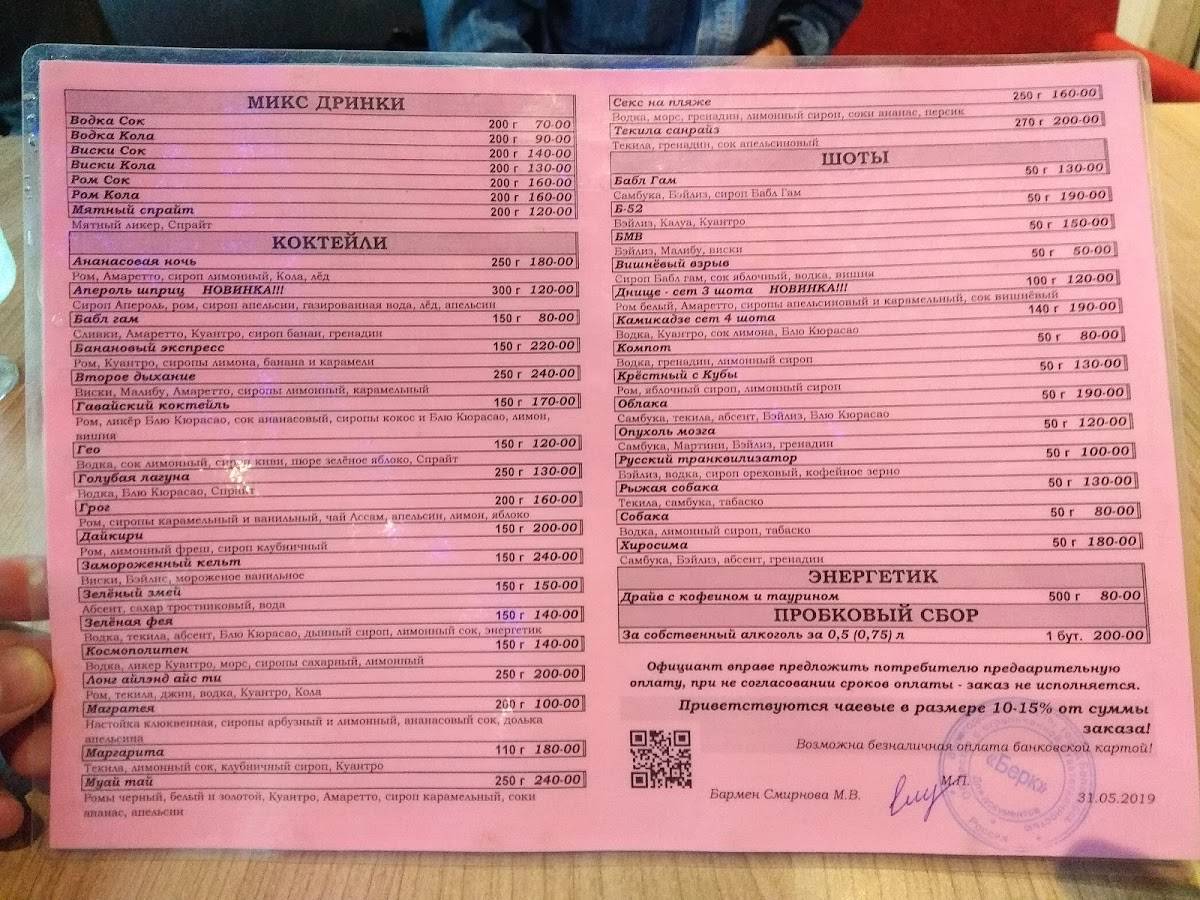 МИКС ДРИНКИ
Водка Сок 200 г 70-00
Водка Кола 200 г 90-00
Виски Сок 200 г 140-00
Виски Кола 200 г 130-00
Ром Сок 200 г 160-00
Ром Кола 200 г 160-00
Мятный спрайт 200 г 120-00
Мятный ликер, Спрайт
КОКТЕЙЛИ
Ананасовая ночь 250 г 180-00
Ром, Амаретто, сироп лимонный, Кола, лёд
Апероль шприц НОВИНКА!!! 300 г 120-00
Сироп Апероль, ром, сироп апельсин, газированная вода, лёд, апельсин
Бабл гам 150 г 80-00
Сливки, Амаретто, Куантро, сироп банан, гренадин
Банановый экспресс 150 г 220-00
Ром, Куантро, сиропы лимона, банана и карамели
Второе дыхание 250 г 240-00
Виски, Малибу, Амаретто, сиропы лимонный, карамельный
Гавайский коктейль 150 г 170-00
Ром, ликёр Блю Кюрасао, сок ананасовый, сиропы кокос и Блю Кюрасао, лимон,
вишня
Гео 150 г 120-00
Водка, сок лимонный, сироп киви, пюре зелёное яблоко, Спрайт
Голубая лагуна 250 г 130-00
Водка, Блю Кюрасао, Спрайт
Грог 200 г 160-00
Ром, сиропы карамельный и ванильный, чай Ассам, апельсин, лимон, яблоко
Дайкири 150 г 200-00
Ром, лимонный фреш, сироп клубничный
Замороженный кельт 150 г 240-00
Виски, Бэйлис, мороженое ванильное
Зелёный змей 150 г 150-00
Абсент, сахар тростниковый, вода
Зелёная фея 150 г 140-00
Водка, текила, абсент, Блю Кюрасао, дынный сироп, лимонный сок, энергетик
Космополитен 150 г 140-00
Водка, ликер Куантро, морс, сиропы сахарный, лимонный
Лонг айлэнд айс ти 250 г 200-00
Ром, текила, джин, водка, Куантро, Кола
Магратея 200 г 100-00
Настойка клюквенная, сиропы арбузный и лимонный, ананасовый сок, долька
апельсина
Маргарита 110 г 180-00
Текила, лимонный сок, клубничный сироп, Куантро
Муай тай 250 г 240-00
Ромы черный, белый и золотой, Куантро, Амаретто, сироп карамельный, соки
ананас, апельсин
Секс на пляже 250 г 160-00
Водка, морс, гренадин, лимонный сироп, соки ананас, персик
Текила санрайз 270 г 200-00
Текила, гренадин, сок апельсиновый
ШОТЫ
Бабл Гам 50 г 130-00
Самбука, Бэйлиз, сироп Бабл Гам
Б-52 50 г 190-00
Бэйлиз, Калуа, Куантро
БМВ 50 г 150-00
Бэйлиз, Малибу, виски
Вишнёвый взрыв 50 г 50-00
Сироп Бабл гам, сок яблочный, водка, вишня
Днище - сет 3 шота НОВИНКА!!! 100 г 120-00
Ром белый, Амаретто, сиропы апельсиновый и карамельный, сок вишнёвый
Камикадзе сет 4 шота 140 г 190-00
Водка, Куантро, сок лимона, Блю Кюрасао
Компот 50 г 80-00
Водка, гренадин, лимонный сироп
Крёстный с Кубы 50 г 130-00
Ром, яблочный сироп, лимонный сироп
Облака 50 г 190-00
Самбука, текила, абсент, Бэйлиз, Блю Кюрасао
Опухоль мозга 50 г 120-00
Самбука, Мартини, Бэйлиз, гренадин
Русский транквилизатор 50 г 100-00
Бэйлиз, водка, сироп ореховый, кофейное зерно
Рыжая собака 50 г 130-00
Текила, самбука, табаско
Собака 50 г 80-00
Водка, лимонный сироп, табаско
Хиросима 50 г 180-00
Самбука, Бэйлиз, абсент, гренадин
ЭНЕРГЕТИК
Драйв с кофеином и таурином 500 г 80-00
ПРОБКОВЫЙ СБОР
За собственный алкоголь за 0,5 (0,75) л 1 бут. 200-00
Официант вправе предложить потребителю предварительную
оплату, при не согласовании сроков оплаты - заказ не исполняется.
Приветствуются чаевые в размере 10-15% от суммы
заказа!
Возможна безналичная оплата банковской картой!
М.П.
Бармен Смирнова М.В.
31.05.2019
«Берк»
Для документов
Россия